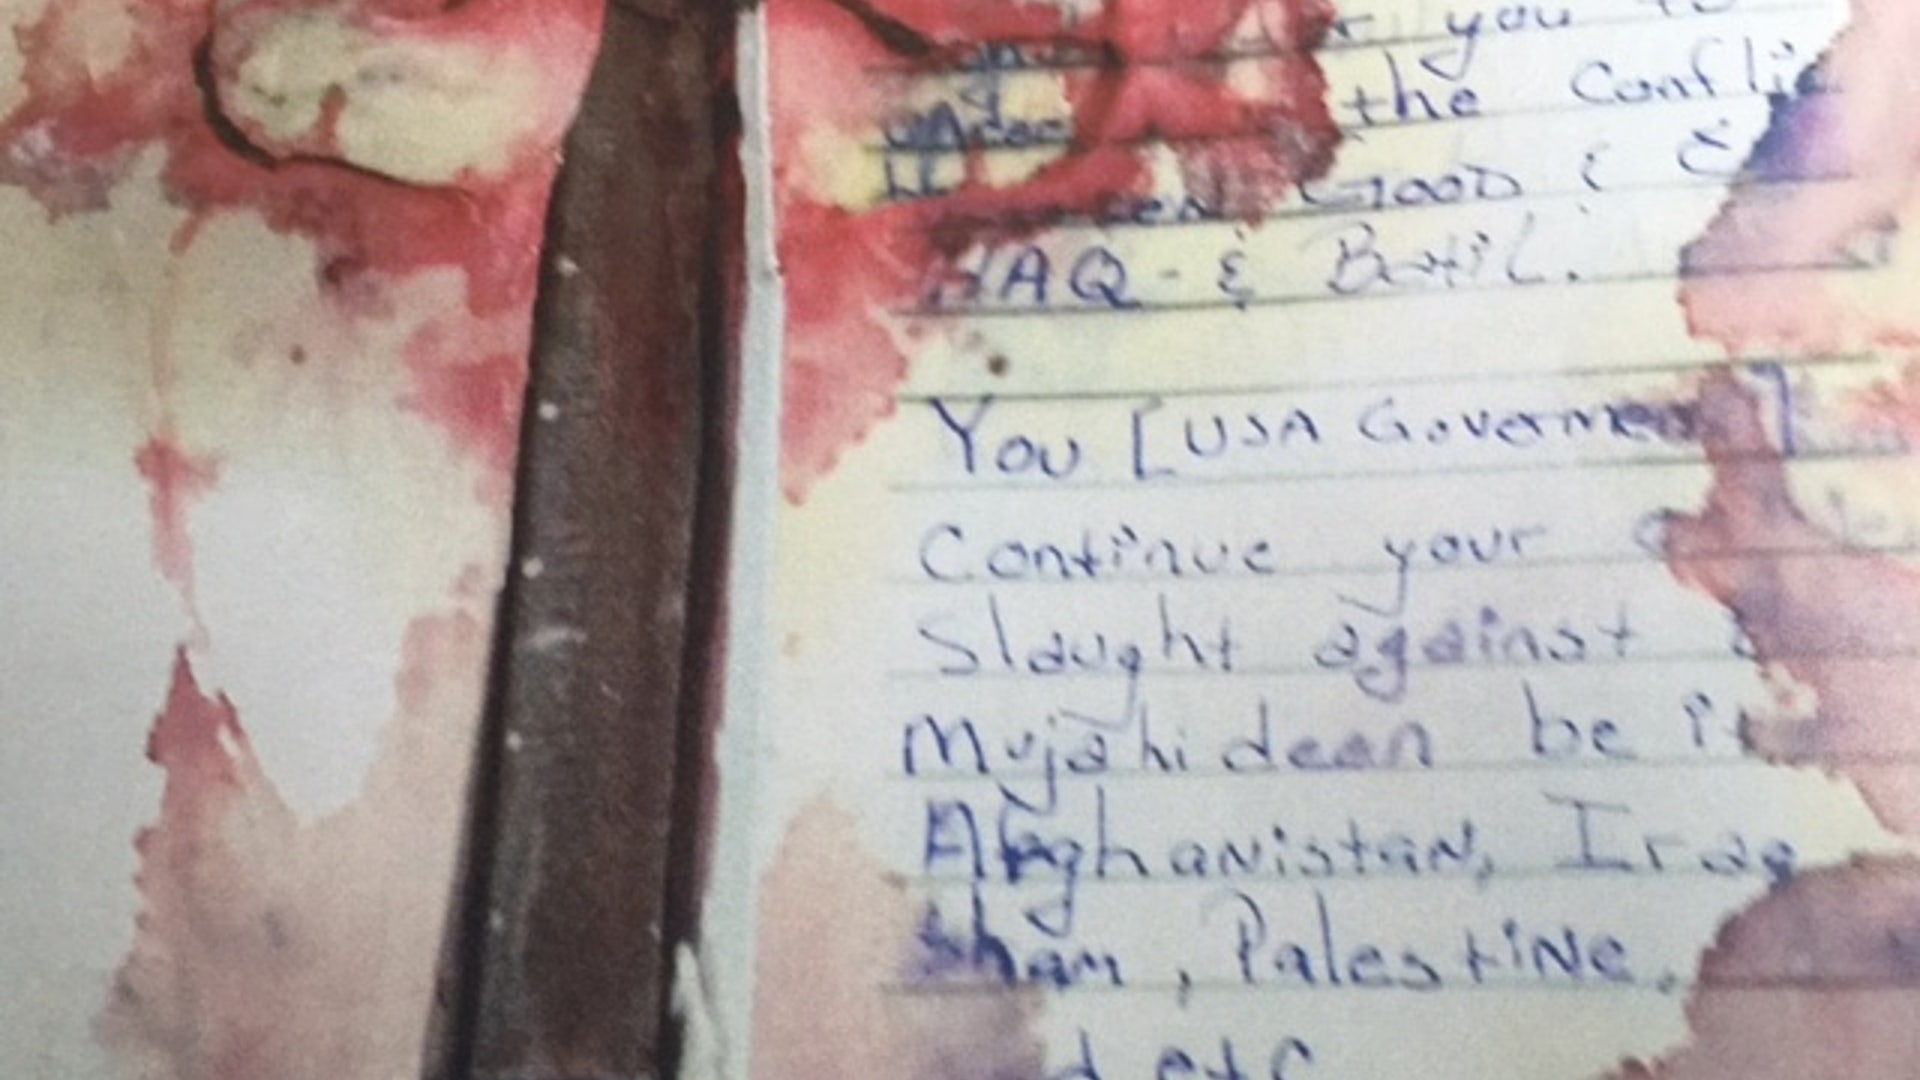 you to
the Conflic
GOOD &
HAQ - & Batil.
You [USA Governmen]
Continue your
Slaught against
Mujahideen be it
Afghanistan, Iraq
Sham, Palestine,
etc